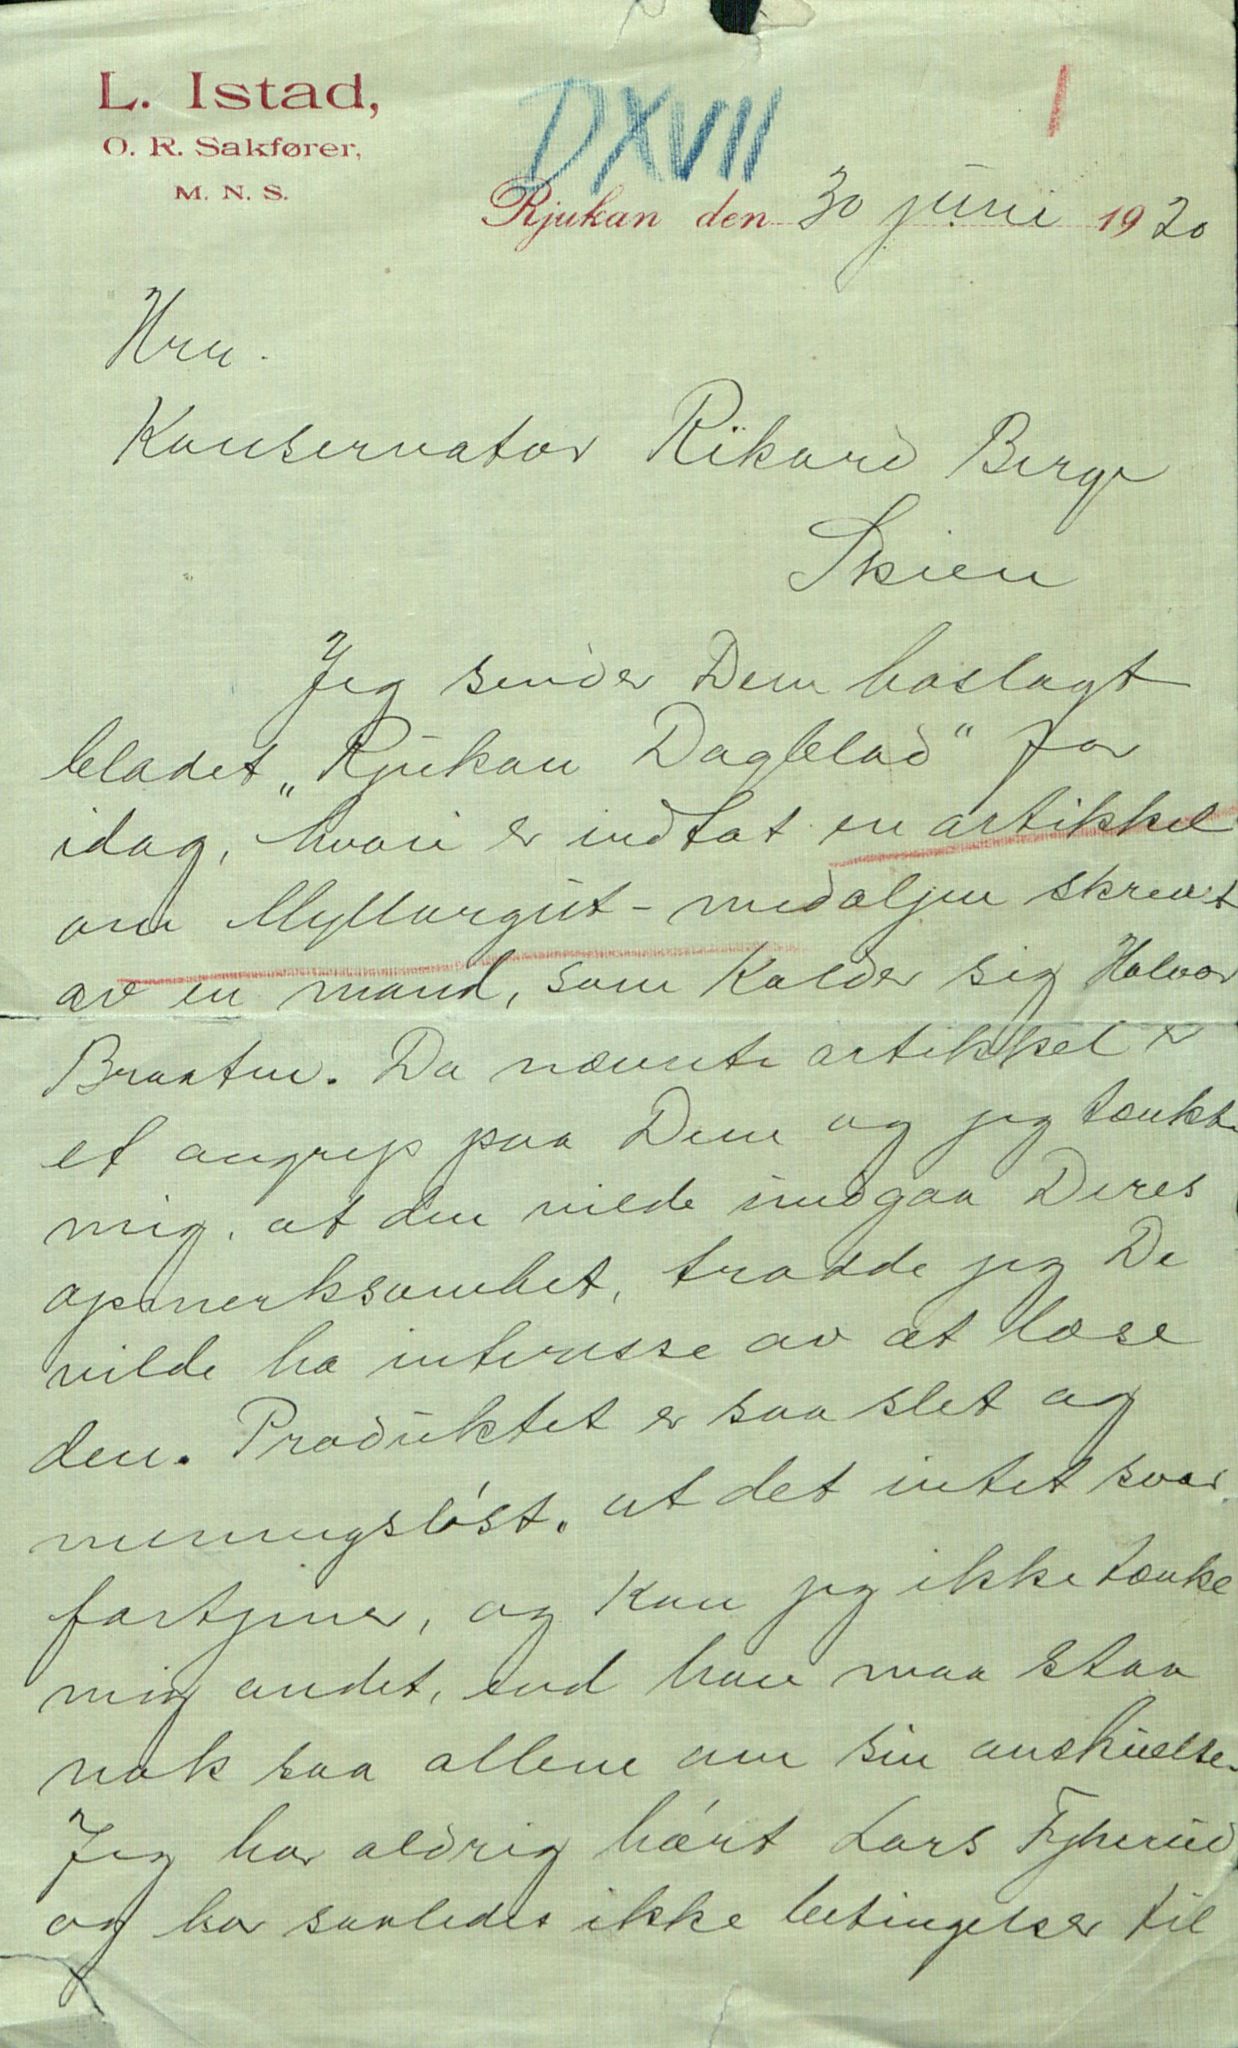 L. Istad,
O. R. Sakfører,
M. N. S.
DXVII
1
Rjukan den 30 juni 1920
Hrr.
Konservator Rikard Berge
Skien
Jeg sender Dem hoslagt
bladet „Rjukan Dagblad" for
idag, hvori er indtat en artikkel
om Myllargut-medaljen skrevet
av en mand, som kalder sig Halvor
Braaten. Da nævnte artikkel er
et angrep paa Dem og jeg tænkte
mig, at den vilde undgaa Deres
opmerksomhet, trodde jeg De
vilde ha interesse av at læse
den. Produktet er saa slet og
meningsløst, at det intet svar
fortjener, og kan jeg ikke tænke
mig andet, end han maa staa
nok saa allene om sin anskuelse.
Jeg har aldrig hørt Lars Fykerud
og har saaledes ikke betingelser til